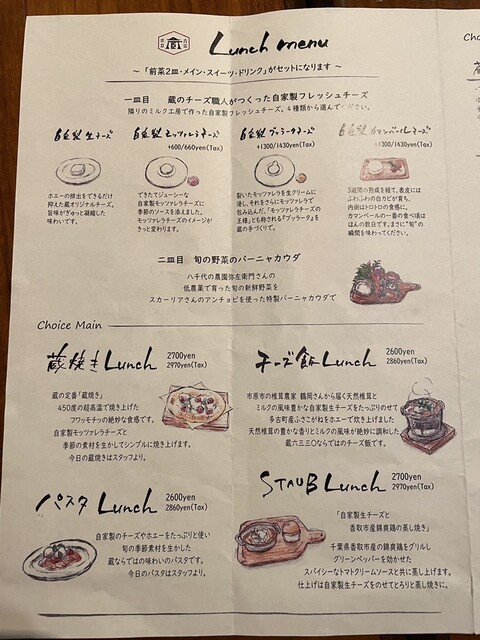 蔵
Lunch menu
～「前菜2皿・メイン・スイーツ・ドリンク」がセットになります～
一皿目　蔵のチーズ職人がつくった自家製フレッシュチーズ
隣りのミルク工房で作った自家製フレッシュチーズ。4種類から選んでください。
自家製 生チーズ
ホエーの排出をできるだけ
抑えた蔵オリジナルチーズ。
旨味がぎゅっと凝縮した
味わいです。
自家製モッツァレラチーズ
+600/660yen(Tax)
できたてジューシーな
自家製モッツァレラチーズに
季節のソースを添えました。
モッツァレラチーズのイメージが
きっと変わります。
自家製ブッラータチーズ
+1300/1430yen(Tax)
裂いたモッツァレラを生クリームに
浸し、それをさらにモッツァレラで
包み込んだ、「モッツァチーズの
王様」とも称される「ブッラータ」を
蔵の手づくりで。
自家製カマンベールチーズ
+1300/1430yen(Tax)
3週間の熟成を経て、表皮には
ふわふわの白カビが育ち、
内側はトロトロの食感に。
カマンベールの一番の食べ頃は
ほんの数日です。まさに"旬"の
瞬間を味わってください。
二皿目　旬の野菜のバーニャカウダ
八千代の農園弥左衛門さんの
低農薬で育った旬の新鮮野菜を
スカーリアさんのアンチョビを使った特製バーニャカウダで
Choice Main
蔵焼きLunch
2700yen
2970yen(Tax)
蔵の定番「蔵焼き」
450度の超高温で焼き上げた
フワッモチッの絶妙な食感です。
自家製モッツァレラチーズと
季節の素材を生かしてシンプルに焼き上げます。
今日の蔵焼きはスタッフより。
チーズ飯Lunch
2600yen
2860yen(Tax)
市原市の椎茸農家 鶴岡さんから届く天然椎茸と
ミルクの風味豊かな自家製生チーズをたっぷりのせて
多古町産ふさこがねをホエーで炊き上げました。
天然椎茸の豊かな香りとミルクの風味が絶妙に調和した
蔵六三三〇ならではのチーズ飯です。
パスタ Lunch
2600yen
2860yen(Tax)
自家製のチーズやホエーをたっぷりと使い
旬の季節素材を生かした
蔵ならではの味わいのパスタです。
今日のパスタはスタッフより。
STAUB Lunch
2700yen
2970yen(Tax)
「自家製生チーズと
香取市産錦爽鶏の蒸し焼き」
千葉県香取市産の錦爽鶏をグリルし
グリーンペッパーを効かせた
スパイシーなトマトクリームソースと共に蒸し上げます。
仕上げは自家製生チーズをのせてとろりと蒸し焼きに。